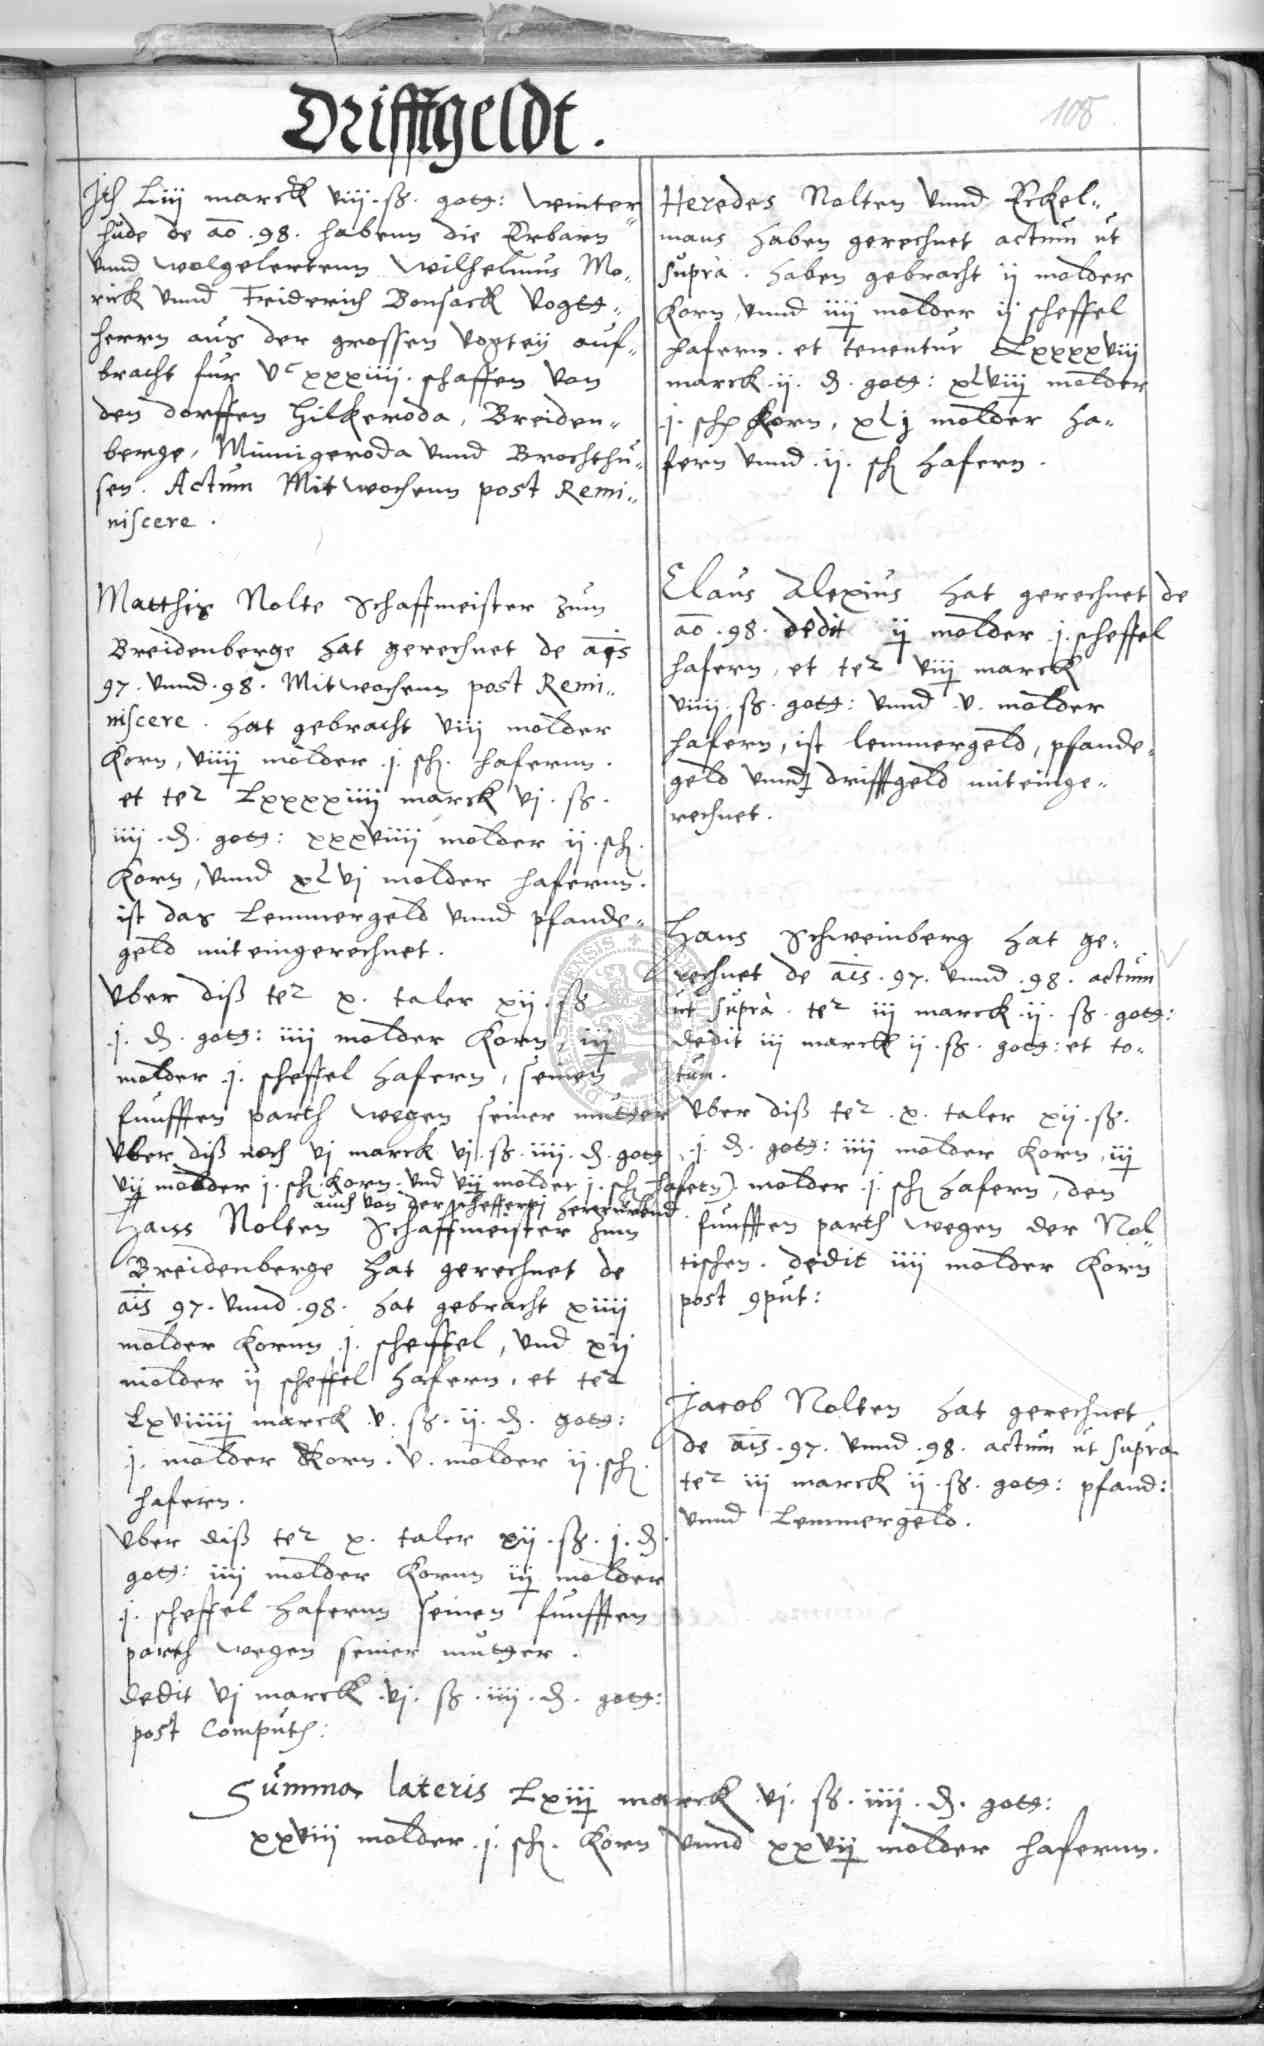 Drifftgeldt.
108
Ith Liiij marck viij. ß. gotg: winter
hude de ao .98. habenn die Erbarn
vnnd wolgelertenn Wilhelmus Mo-
rick vnnd Friderich Bonsack Vogtg-
herrn aus der grossen Vogtey auf-
bracht fur Vc xxxiiij. schaffen von
den dorffen Hilkeroda, Breiden-
berge, Minnigeroda vnnd Brochthu-
sen. Actum Mitwochenn post Remi-
niscere.
Matthis Nolte Schaffmeister zum
Breidenberge hat gerechnet de ais
97. vnnd .98. Mitwochenn post Remi-
niscere. hat gebracht viij molder
Korn, viiij molder .j. sch. hafernn.
et ter Lxxxxiiij marck vj. ß.
iiij .d. gotg: xxxviiij molder ij .sch.
Korn, vnnd xLvj molder hafernn.
ist das Lemmergeld vnnd pfande-
geld mit eingerechnet.
Vber diß ter x. taler xij .ß
.j. d. gotg: iiij molder Korn, iij
molder .j. scheffel hafern, seinen
funfften parth wegen seiner mutter
Vber diß noch vj marck vj. ß. iiij. d. gotg
vij molder j. sch. Korn. vnd vij molder j. sch. hafern)
auch von der schefferei herrurend.
Hans Nolten Schaffmeister zum
Breidenberge hat gerechnet de
ais 97. vnnd .98. hat gebracht xiiij
molder Kornn .j. scheffel, vnd xij
molder ij scheffel hafern, et ter
Lxviiij marck v. ß. ij. d. gotg:
j. molder Korn. v. molder ij .sch.
hafern.
Vber diß ter x. taler xij .ß. j. d.
gotg: iiij molder Kornn iij molder
j. scheffel hafernn seinen funfften
parth wegen seiner mutter.
dedit vj marck vj. ß. iiij .d. gotg:
post Computh:
Heredes Nolten vnnd Eckel-
mans haben gerechnet actum ut
supra. haben gebracht ij molder
Korn, vnnd iiij molder ij scheffel
hafern. et tenentur Lxxxxviij
marck .ij. d. gotg: xLviij molder
.j. sch Korn, xLj molder ha-
fern vnnd .ij. sch hafern.
Claus Alexius hat gerechnet de
ao .98. dedit ij molder .j. scheffel
hafern, et ter viij marck
viiij. ß. gotg: vnnd .v. molder
hafern, ist lemmergeld, pfande-
geld vnnd drifftgeld mit einge-
rechnet.
Hans Schweinberg hat ge-
rechnet de ais .97. vnnd .98. actum
ut supra. ter iij marck .ij. ß. gotg:
dedit iij marck ij .ß. gotg: et to-
tum.
Vber diß ter .x. taler xij .ß.
.j. d. gotg: iiij molder Korn, iij
molder .j. sch hafern, den
funfften parth wegen der Nol-
tischen. dedit iiij molder Korn
post 9put:
Jacob Nolten hat gerechnet
de ais .97. vnnd .98. actum ut supra
ter iij marck ij .ß. gotg: pfand:
vnnd Lemmergeld.
Summa lateris Lxiij marck .vj. ß. iiij .d. gotg:
xxviij molder .j. sch. Korn vnnd xxvij molder hafernn.